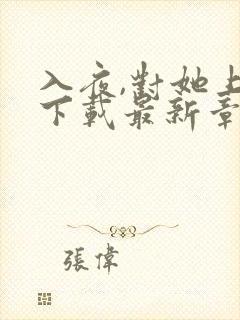 入夜,對她上
下載最新章
張偉